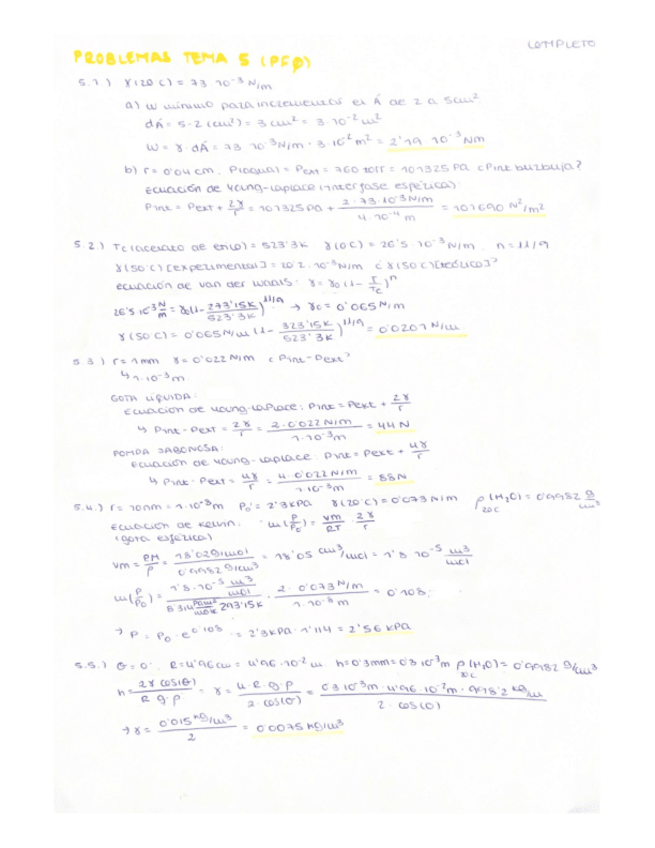 COMPLETO
PROBLEMAS TEMA 5 (PFQ)
5.1.) γ(20°C) = 73·10⁻³ N/m
a) W mínimo para incrementar el Á de 2 a 5cm²
dÁ = 5-2 (cm²) = 3 cm² = 3·10⁻² m²
W = γ·dÁ = 73·10⁻³ N/m · 3·10⁻² m² = 2'19·10⁻³ Nm
b) r = 0'04 cm, P(agua) = Pext = 760 torr = 101325 Pa ¿Pint burbuja?
Ecuación de Young-Laplace (interfase esférica):
Pint = Pext + 2γ/r = 101325 Pa + 2·73·10⁻³ N/m / 4·10⁻⁴ m = 101690 N²/m²
5.2.) Tc (acetato de etilo) = 523'3K γ(0°C) = 26'5·10⁻³ N/m, n = 11/9
γ(50°C) [experimental] = 20'2·10⁻³ N/m ¿γ(50°C) [teórico]?
ecuación de van der Waals: γ = γ₀(1 - T/Tc)ⁿ
26'5·10⁻³ N/m = γ₀(1 - 273'15K / 523'3K)^11/9 → γ₀ = 0'065 N/m
γ(50°C) = 0'065 N/m (1 - 323'15K / 523'3K)^11/9 = 0'0201 N/m
5.3.) r = 1mm γ = 0'022 N/m ¿Pint - Pext?
↳ 1·10⁻³ m
GOTA LÍQUIDA:
Ecuación de Young-Laplace: Pint = Pext + 2γ/r
↳ Pint - Pext = 2γ/r = 2·0'022 N/m / 1·10⁻³ m = 44 N
POMPA JABONOSA:
Ecuación de Young-Laplace: Pint = Pext + 4γ/r
↳ Pint - Pext = 4γ/r = 4·0'022 N/m / 1·10⁻³ m = 88N
5.4.) r = 10nm = 1·10⁻⁸ m P₀ = 2'3kPa γ(20°C) = 0'073 N/m ρ 20°C (H₂O) = 0'9982 g/cm³
Ecuación de Kelvin: ln(P/P₀) = Vm/RT · 2γ/r
(gota esférica)
Vm = PM/ρ = 18'02 g/mol / 0'9982 g/cm³ = 18'05 cm³/mol = 1'8·10⁻⁵ m³/mol
ln(P/P₀) = 1'8·10⁻⁵ m³/mol / 8'314 Pa·m³/mol·K · 293'15K · 2·0'073 N/m / 1·10⁻⁸ m = 0'108
→ P = P₀·e^0'108 = 2'3kPa·1'114 = 2'56 kPa
5.5.) θ = 0° R = 4'96 cm = 4'96·10⁻² m h = 0'3mm = 0'3·10⁻³ m ρ 20°C (H₂O) = 0'9982 g/cm³
h = 2γ cos(θ) / R·g·ρ → γ = h·R·g·ρ / 2·cos(θ) = 0'3·10⁻³ m · 4'96·10⁻² m · 998'2 kg/m / 2·cos(0)
→ γ = 0'015 kg/m³ / 2 = 0'0075 kg/m³